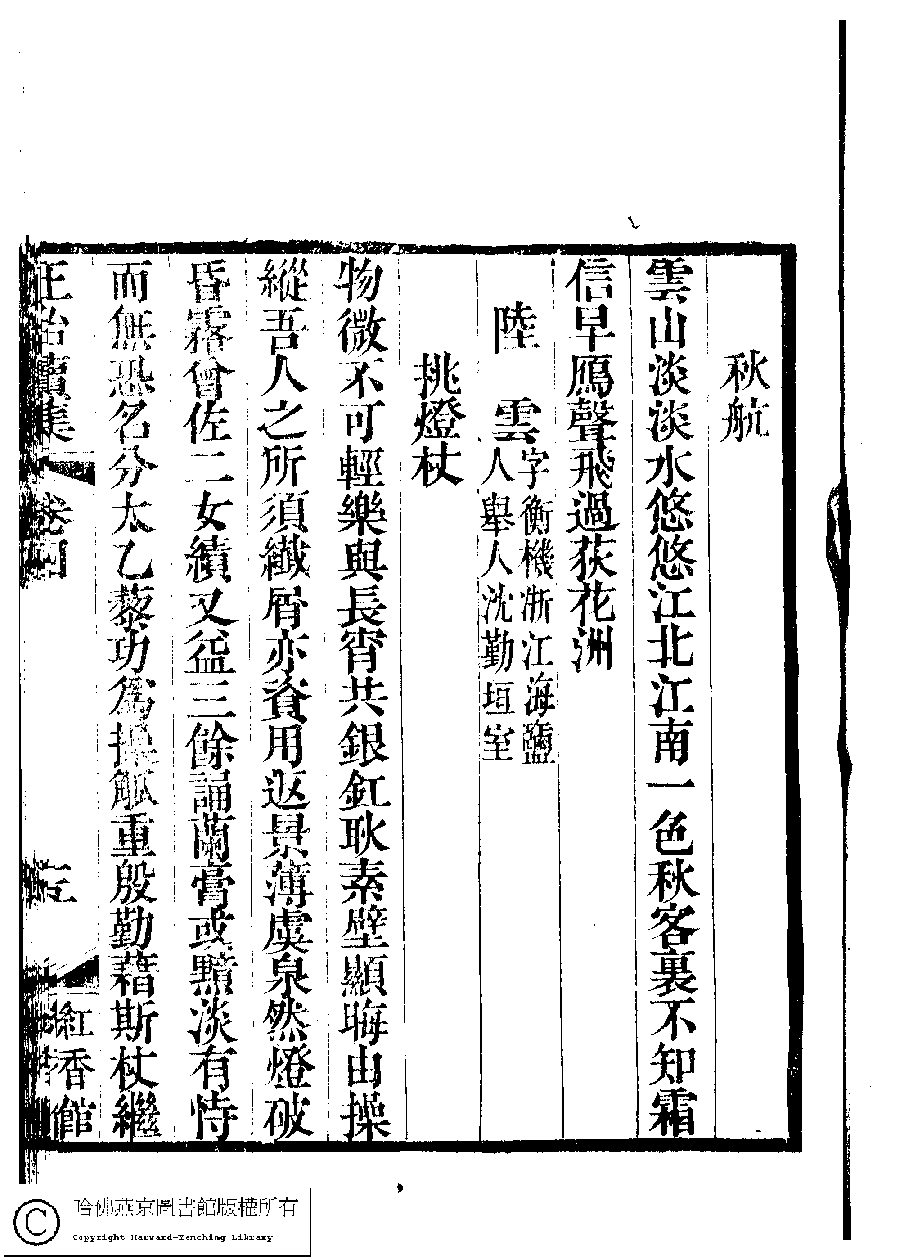 秋航
雲山淡淡水悠悠江北江南一色秋客裏不知霜
信早鴈聲飛過荻花洲
陸 雲 字衡機浙江海鹽
人舉人沈勤垣室
挑燈杖
物微不可輕樂與長宵共銀釭耿素壁顯晦由操
縱吾人之所須纎屑亦資用返景薄虞泉然燈破
昏霧曾佐二女績又益三餘誦蘭膏或黯淡有恃
而無恐名分太乙藜功爲操觚重殷勤藉斯杖繼
正始續集 卷四 紅香館
哈佛燕京圖書館版權所有
Copyright Harvard-Yenching Library